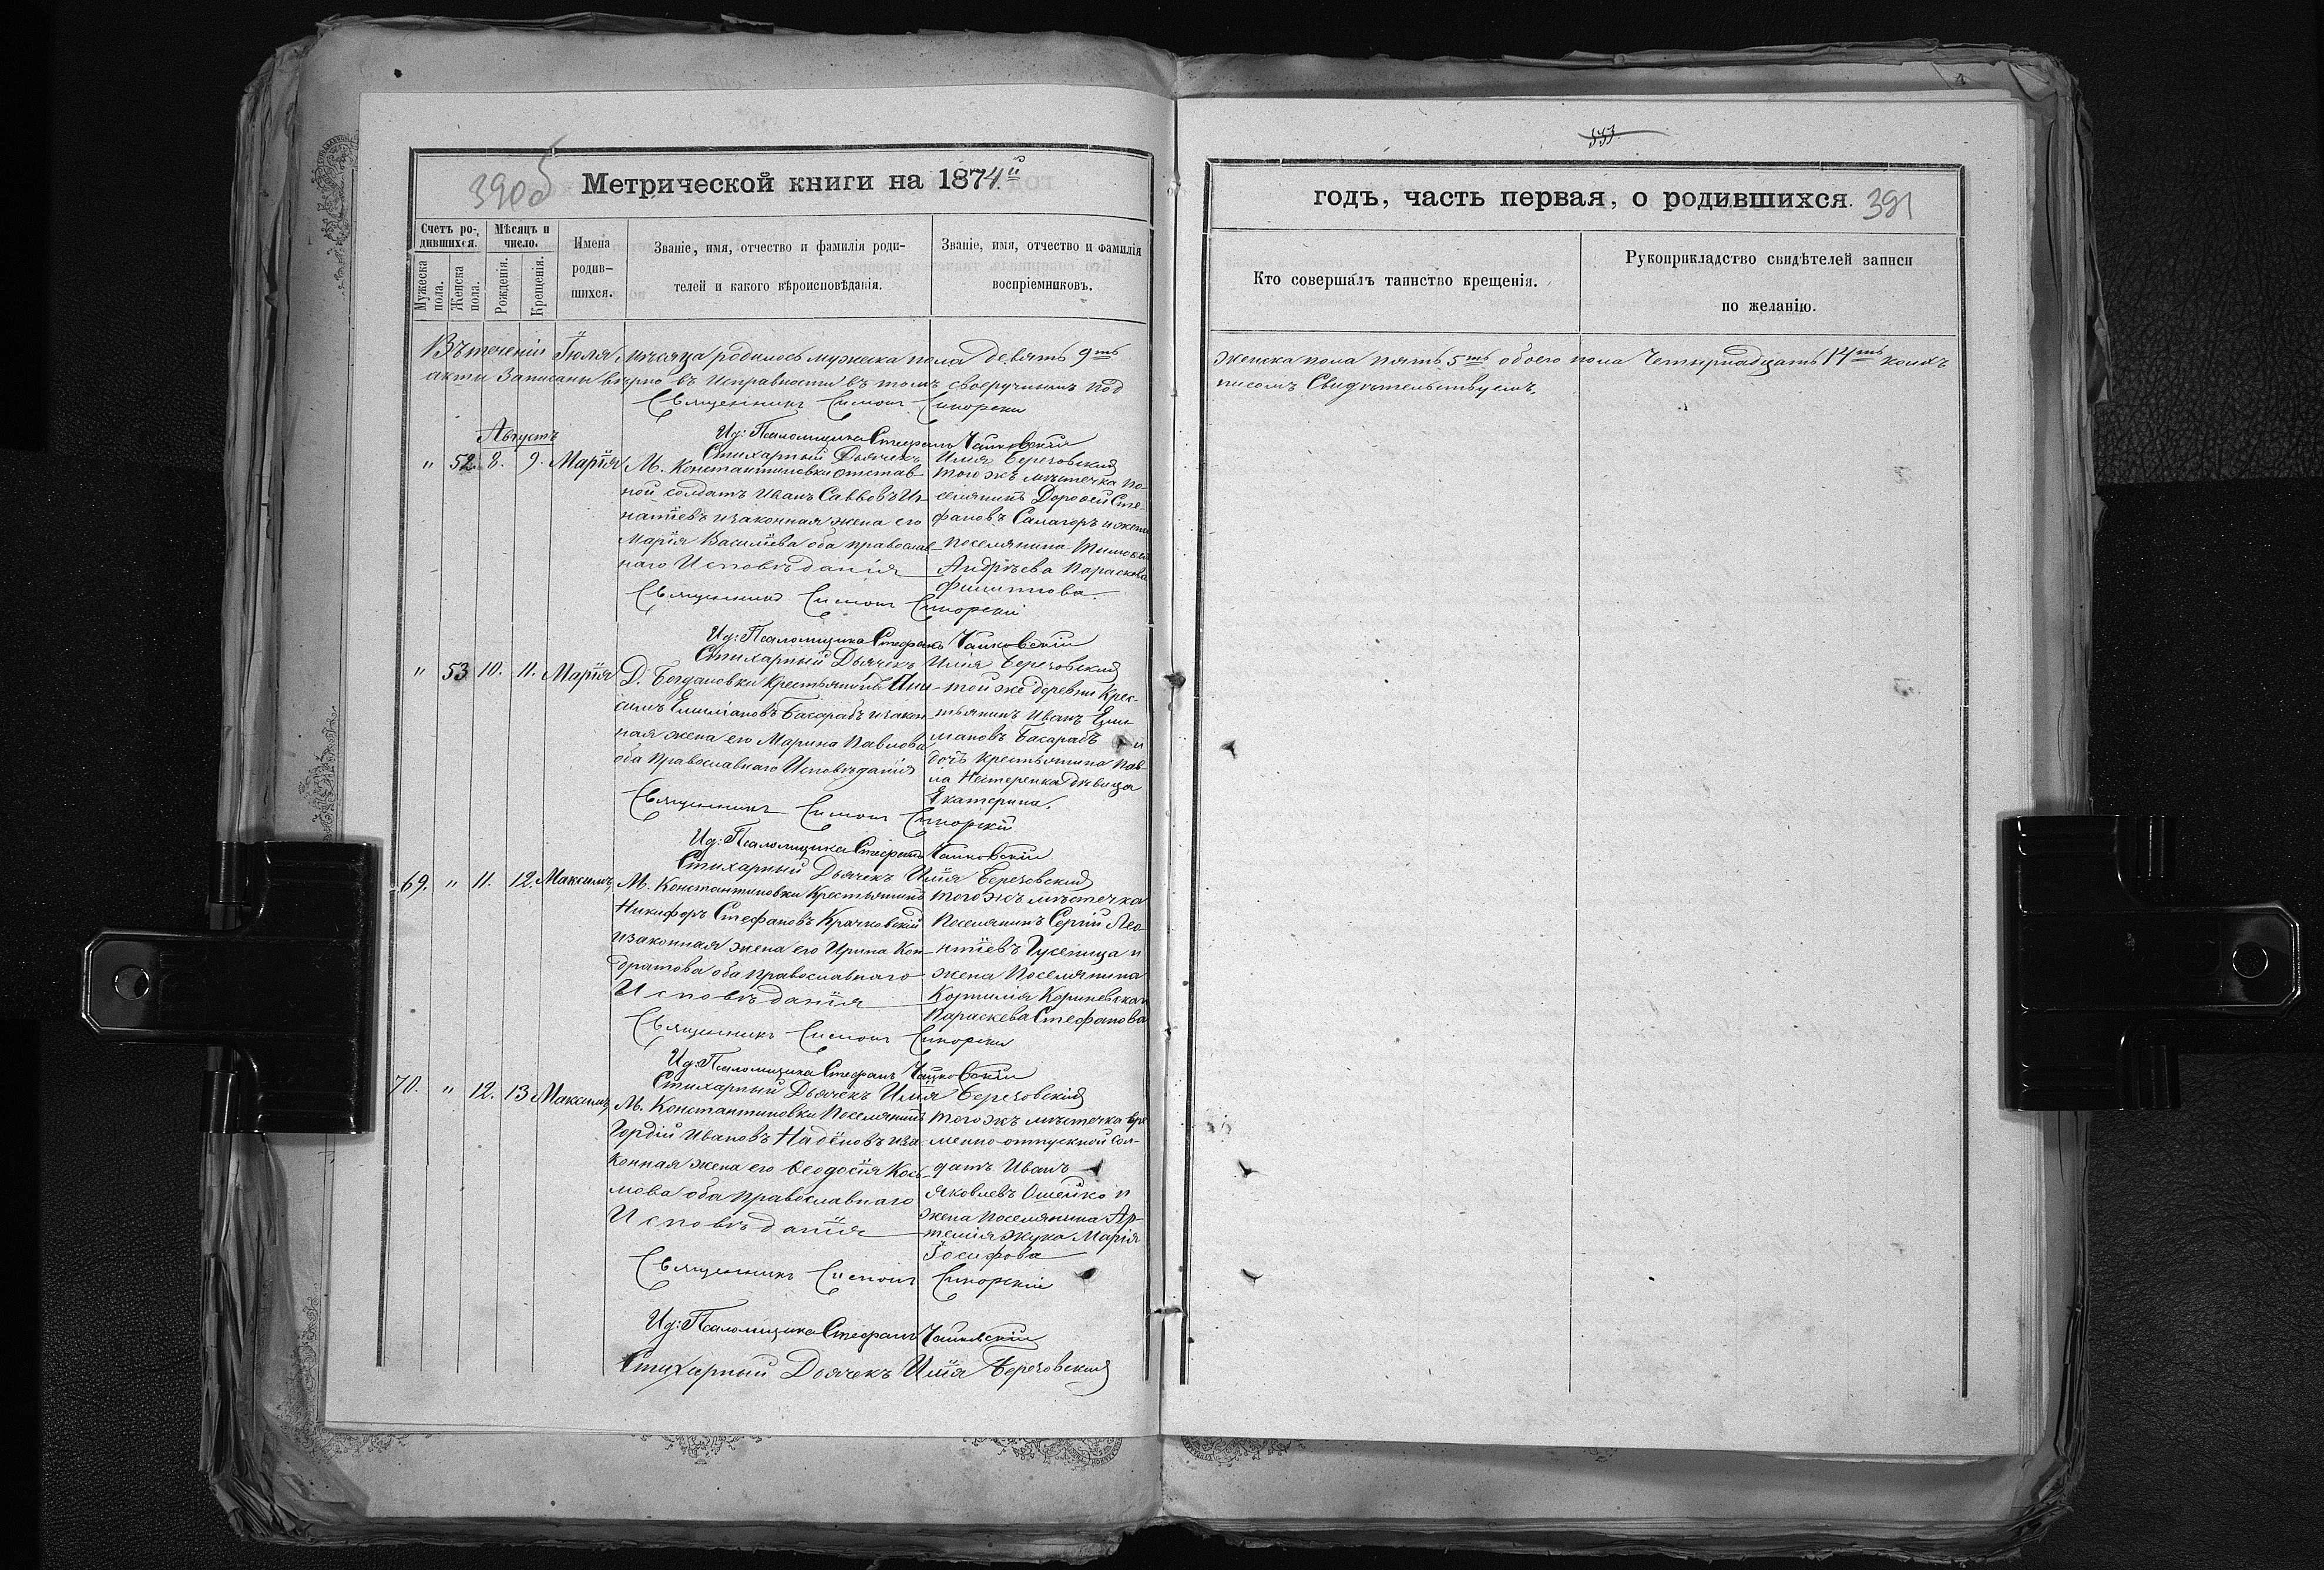 390об
Метрической книги на 1874й
Счетъ родившихся.
Мѣсяцъ и число.
Мужеска пола.
Женска пола.
Рожденія.
Крещенія.
Имена родив-
шихся.
Званіе, имя, отчество и фамилія роди-
телей и какого вѣроисповѣданія.
Званіе, имя, отчество и фамилія
воспріемниковъ.
Въ теченіи Іюля мѣсяца родилось мужеска пола девять 9ть
акти записаны вѣрно въ исправности въ томъ своеручнымъ под
Священникъ Симеон
Ид: Псаломщика Стефанъ Чайковскій
Стихарный Дьячекъ Илія Березовский
Августъ
" 52. 8. 9. Марія
М. Константиновки отстав-
ной солдатъ Иванъ Саввовъ Иг-
натіевъ изаконная жена его
Марія Василіева оба православ-
наго Исповѣданія
того жъ мѣстечка по-
селянинъ Дорофей Сте-
фановъ Саланоръ и жена
поселянина Тимофея
Андрѣева Параскева
Филиппова.
Священникъ Симеон
Ид: Псаломщика Стефанъ Чайковскій
Стихарный Дьячекъ Илія Березовский
" 53 10. 11. Марія
Д. Богдановки Крестьянинъ Они-
симъ Емиліановъ Басарабъ изакон-
ная жена его Марина Павлова
оба Православнаго Исповѣданія
той же деревни Крес-
тьянинъ Иванъ Еми-
лiановъ Басарабъ и
дочь крестьянина Пав-
ла Нестеренка дѣвица
Екатерина.
Священникъ Симеон
Ид: Псаломщика Стефанъ Чайковскій
Стихарный Дьячекъ Илія Березовский
69. " 11. 12. Максимъ
М. Константиновки Крестьянинъ
Никифоръ Стефановъ Крачковскій
изаконная жена его Ирина Кон-
дратова оба православнаго
Исповѣданія
того жъ мѣстечка
Поселянинъ Сергій Лео-
нтіевъ Гусеница и
жена Поселянина
Корнилія Кориневская
Параскева Стефанова
Священникъ Симеон
Ид: Псаломщика Стефанъ Чайковскій
Стихарный Дьячекъ Илія Березовскій
70. " 12. 13 Максимъ
М. Константиновки Поселянинъ
Гордій Ивановъ Надёновъ иза-
конная жена его Ѳеодосія Кось-
мова оба православнаго
Исповѣданія
того жъ мѣстечка вре
менно-отпускной сол-
датъ Иванъ
Яковлевъ Ошейко и
жена поселянина Ар-
темія Жука Марія
Іосифова
Священникъ Симеон
Ид: Псаломщика Стефанъ Чайковскій
Стихарный Дьячекъ Илія Березовский
годъ, часть первая, о родившихся.
391
Кто совершалъ таинство крещенія.
Рукоприкладство свидѣтелей записи
по желанію.
женска пола пять 5ть обоего пола Четырнадцать 14ть коихъ
писомъ Свидѣтельствуемъ.